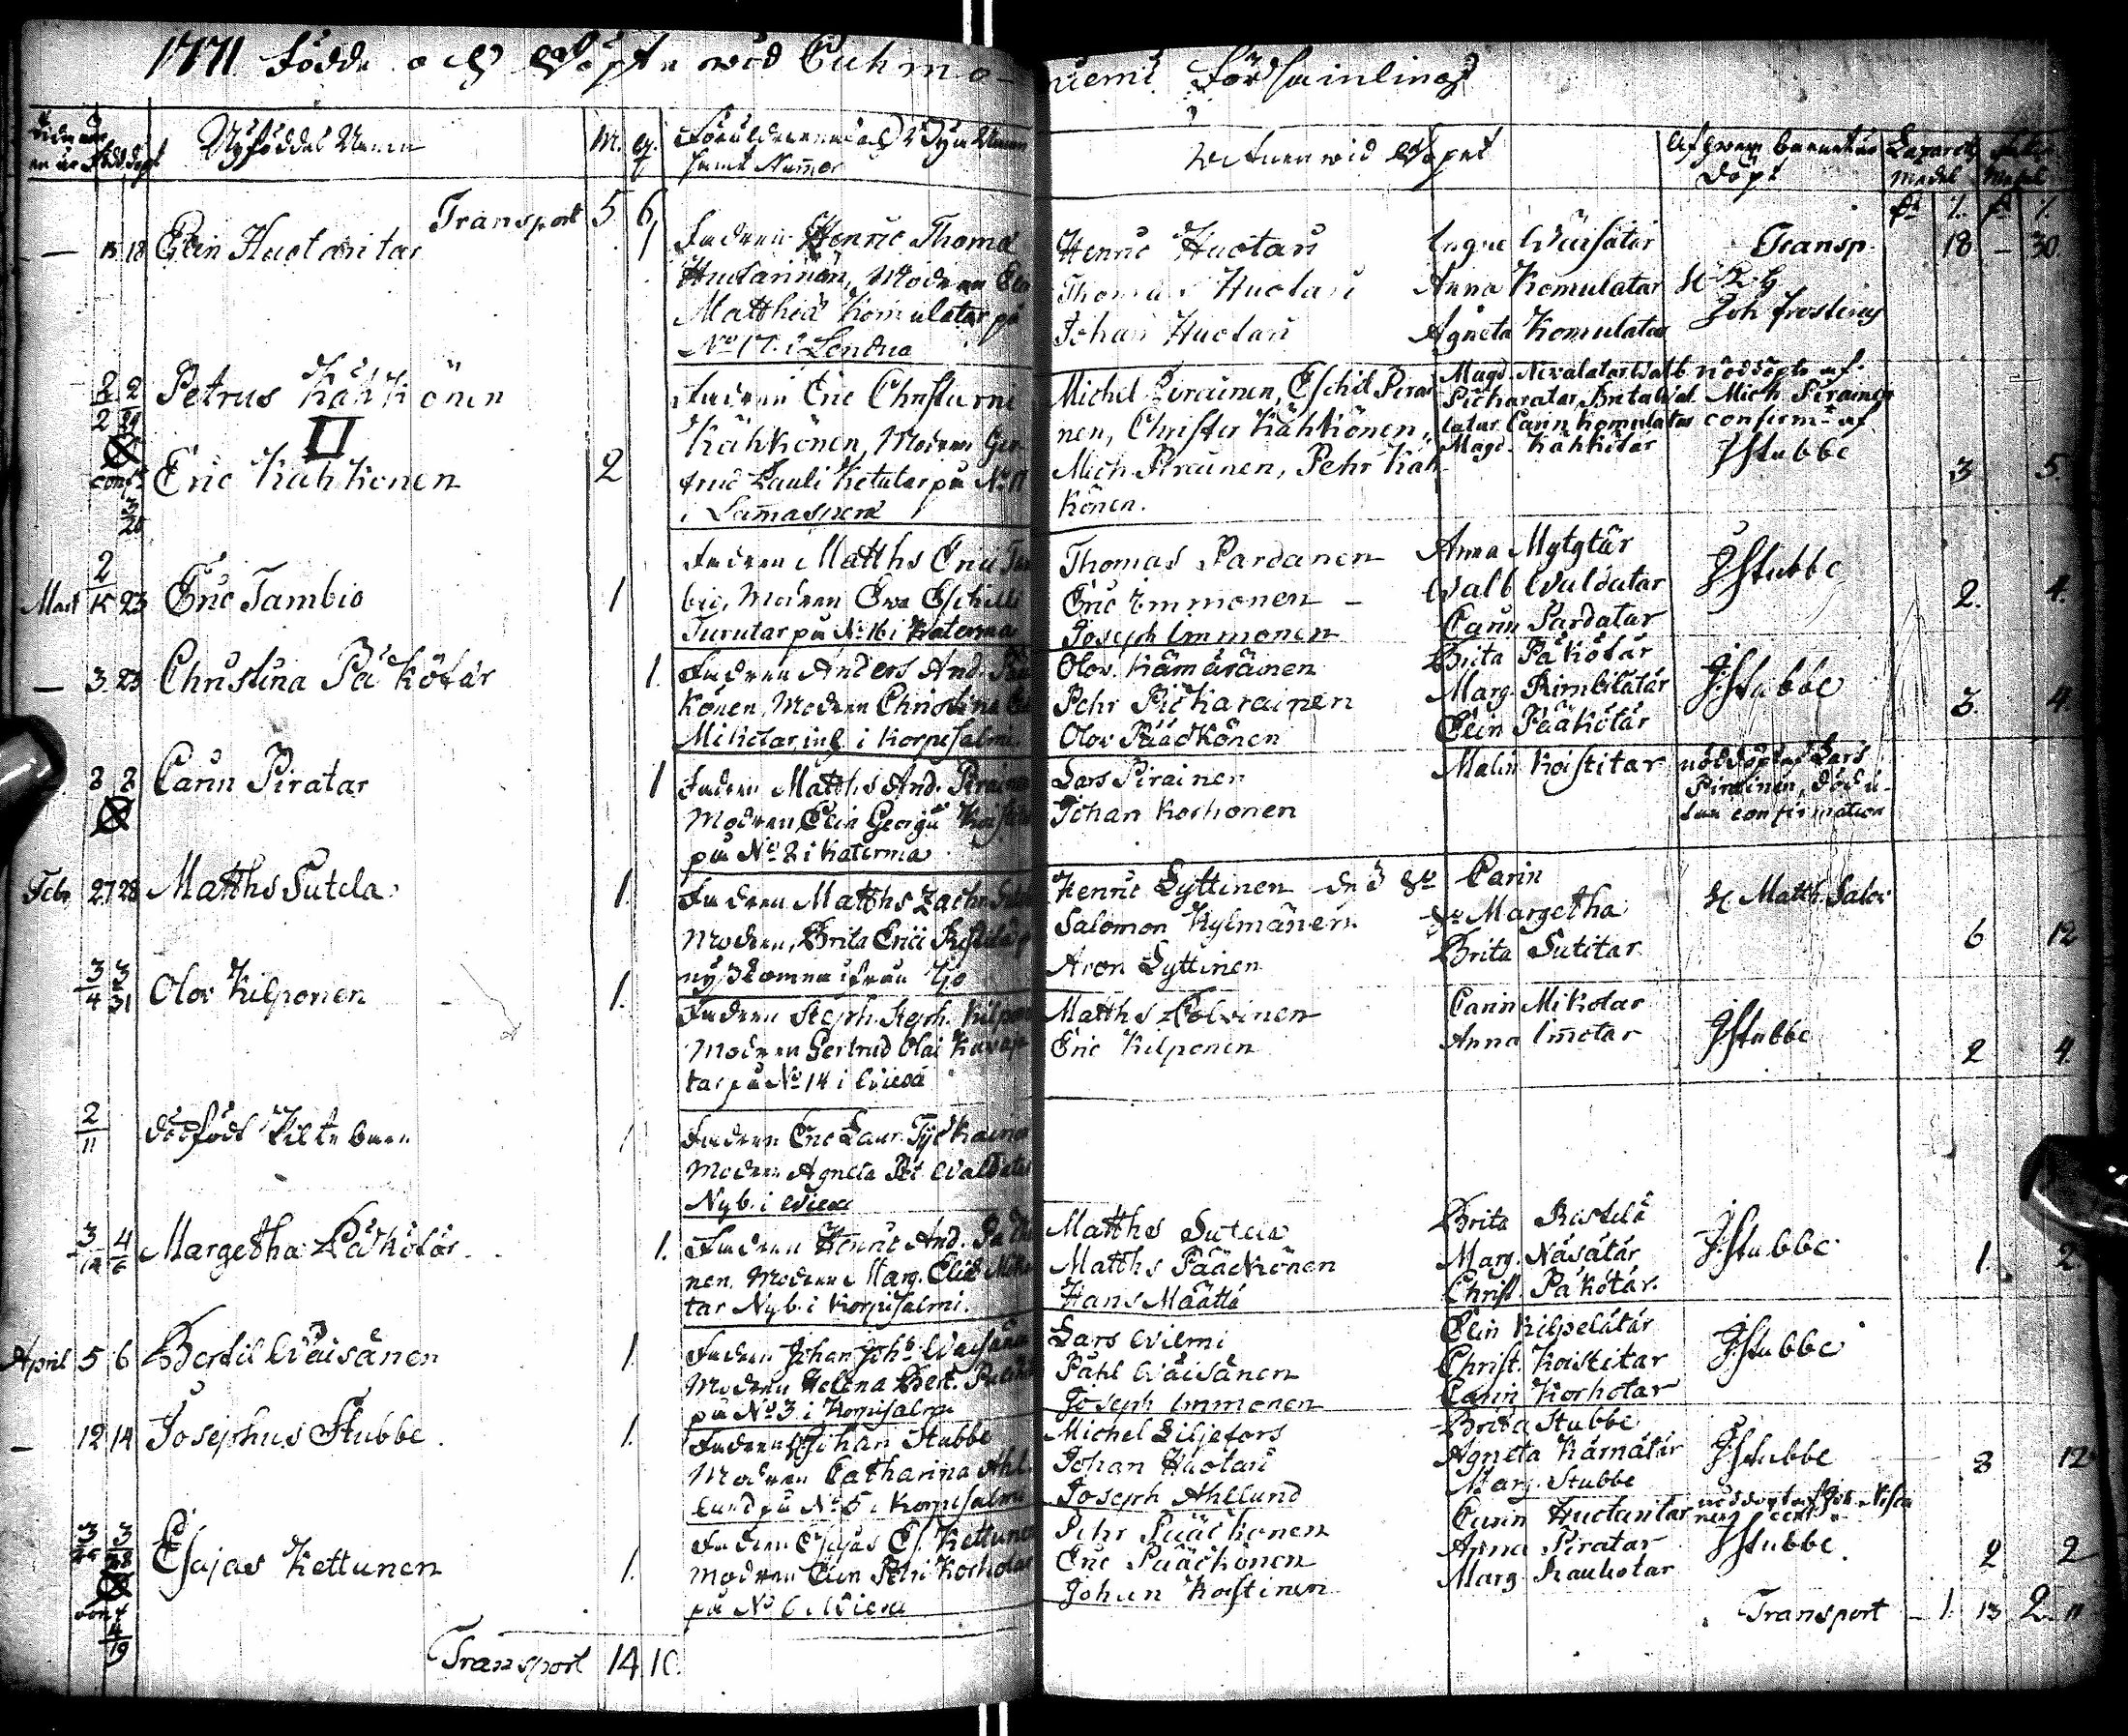 1771 Födde och Döpte wid Cuhmo-
niemi Församling
Nyföddas Namn M. q.
samt Nummer
Wittnen wid Döpet
döpt
Transport 5 6
Transp. 18 - 30.
— 15 18 Elin Huotaritar 1
Fadren Henric Thomæ
Huotarinen, Modren
Matthiæ Komulatar på
No 17. i Lendua
Henric Huotari
Thomas Huotari
Johan Huotari
Anna Komulatar
Agneta Komulatar
Joh Frosterus
2/2 2/24 Petrus Kähkönen
II
conf. 3/20 Eric Kähkönen 2
Fadren Eric Christierni
Kähkönen, Modren Ger-
trud Pauli Ketutar på No 17
i Lam̄asperä
Michel Pirainen, Eschil Pirai
nen, Christer Kähkönen,
Mich Piraunen, Pehr Käh-
könen.
Magd. Kähkötär
nöddöpte af
Mich. Pirainen
confirm. af
JStubbe
3 5.
Mart 2/15 23 Eric Tambio 1
Fadren Matths Erici Tam
bio, Modren Ewa Eschilli
Turutar på No 16 i Katerma
Thomas Pardanen
Eric Immonen —
Joseph Immonen
Anna Mytytär
Walb Waldatar
Carin Pardatar
JStubbe
2. 4.
— 3. 23 Christina Päkötär 1.
Fadren Anders And. Pää
könen, Modren Christina
Mikotar inh. i Korpisalmi.
Olov. Kämäräinen
Pehr Pickarainen
Olov Pääckönen
Brita Päkötär
Marg. Rimbilätär
Elin Pääkötär
JStubbe
3. 4
8 8 Carin Piratar 1
Fadren Matths And. Piraine
Modren Elin Georgii Koistit
på No 2 i Katerma
Lars Pirainen
Johan Korhonen
Malin Koistitar
nöddöpt af Lars
Pirainen, död u-
tan confirmation
Febr 27 28 Matths Sutela 1.
Fadren Matths Zachr. Sutela
Modren, Brita Erici Ristelä
nyßkomne ifrån Ijo
Henric Lyttinen
Salomon Kylmänen
Aron Lyttinen
Carin
Margetha
Brita Sutitar
H. Matth. Salov
6 12
3/4 3/31 Olov Kilponen 1.
Fadren Steph. Steph. Kilpon
Modren Gertrud Olai
tar på No 14 i Wiexi
Matths Polvinen
Eric Kilponen
Carin Mikotar
Anna Im̄otar
JStubbe
2 4
2/11 dödfödt Piltebarn 1
Fadren Eric Laur. Tyckäine
Modren Agneta Pet Waldatar
Nyb. i Wiexi
3/12 4/6 Margetha Päkötär 1.
Fadren Henric And. Päckö
nen. Modren Marg. Eliæ Miko
tar Nyb. i Korpisalmi.
Matths Sutela
Matths Pääckönen
Hans Määttä
Brita Ristelä
Marg. Näsätär
Christ. Päkötär.
JStubbe
1. 2
April 5 6 Bertil Wäisänen 1.
Fadren Johan Johs Waisänen
Modren Helena Bert.
på No 3 i Korpisalmi
Lars Wilmi
Påhl Wäisänen
Joseph Immonen
Elin Kilpelätär
Christ. Koistitar
Carin Korhotar
JStubbe
— 12 14 Josephus Stubbe. 1.
Fadren Johan Stubbe
Modren Catharina Ahl-
lund på No 5 i Korpisalmi
Michel Liljefors
Johan Huotari
Joseph Ahllund
Brita Stubbe
Agneta Kärnätär
Marg. Stubbe
JStubbe
8 12
3/28 Esajas Kettunen 1.
conf 4/19
Fadren Esajas Es. Kettunen
Modren Elin Petri Korhotar
på No 6 i Wiexi
Pehr Pääckönen
Eric Pääckönen
Johan Koistinen
Carin Huotaritar
Anna Piratar
Marg. Raukotar
JStubbe
2 2
Transport 14 10.
Transport – 1. 13 2. 11